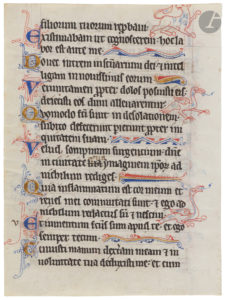 filiorum tuorum reprobaui
Existimabam ut cognoscerem hoc la
bor est ante me
Donec intrem in sanctuarium dei et intel
ligam in nouissimis eorum
Verumtamen propter dolos posuisti eis
deiecisti eos dum alleuarentur
Quomodo facti sunt in desolationem
subito defecerunt perierunt propter ini
quitatem suam
Velud sompnium surgencium domine
in ciuitate tua ymaginem ipsorum ad
nichilum rediges
Quia inflammatum est cor meum et
renes mei commutati sunt et ego ad
nichilum redactus sum et nesciui
Ut iumentum factus sum apud te et ego
semper tecum
Tenuisti manum dexteram meam et in
uoluntate tua deduxisti me et cum